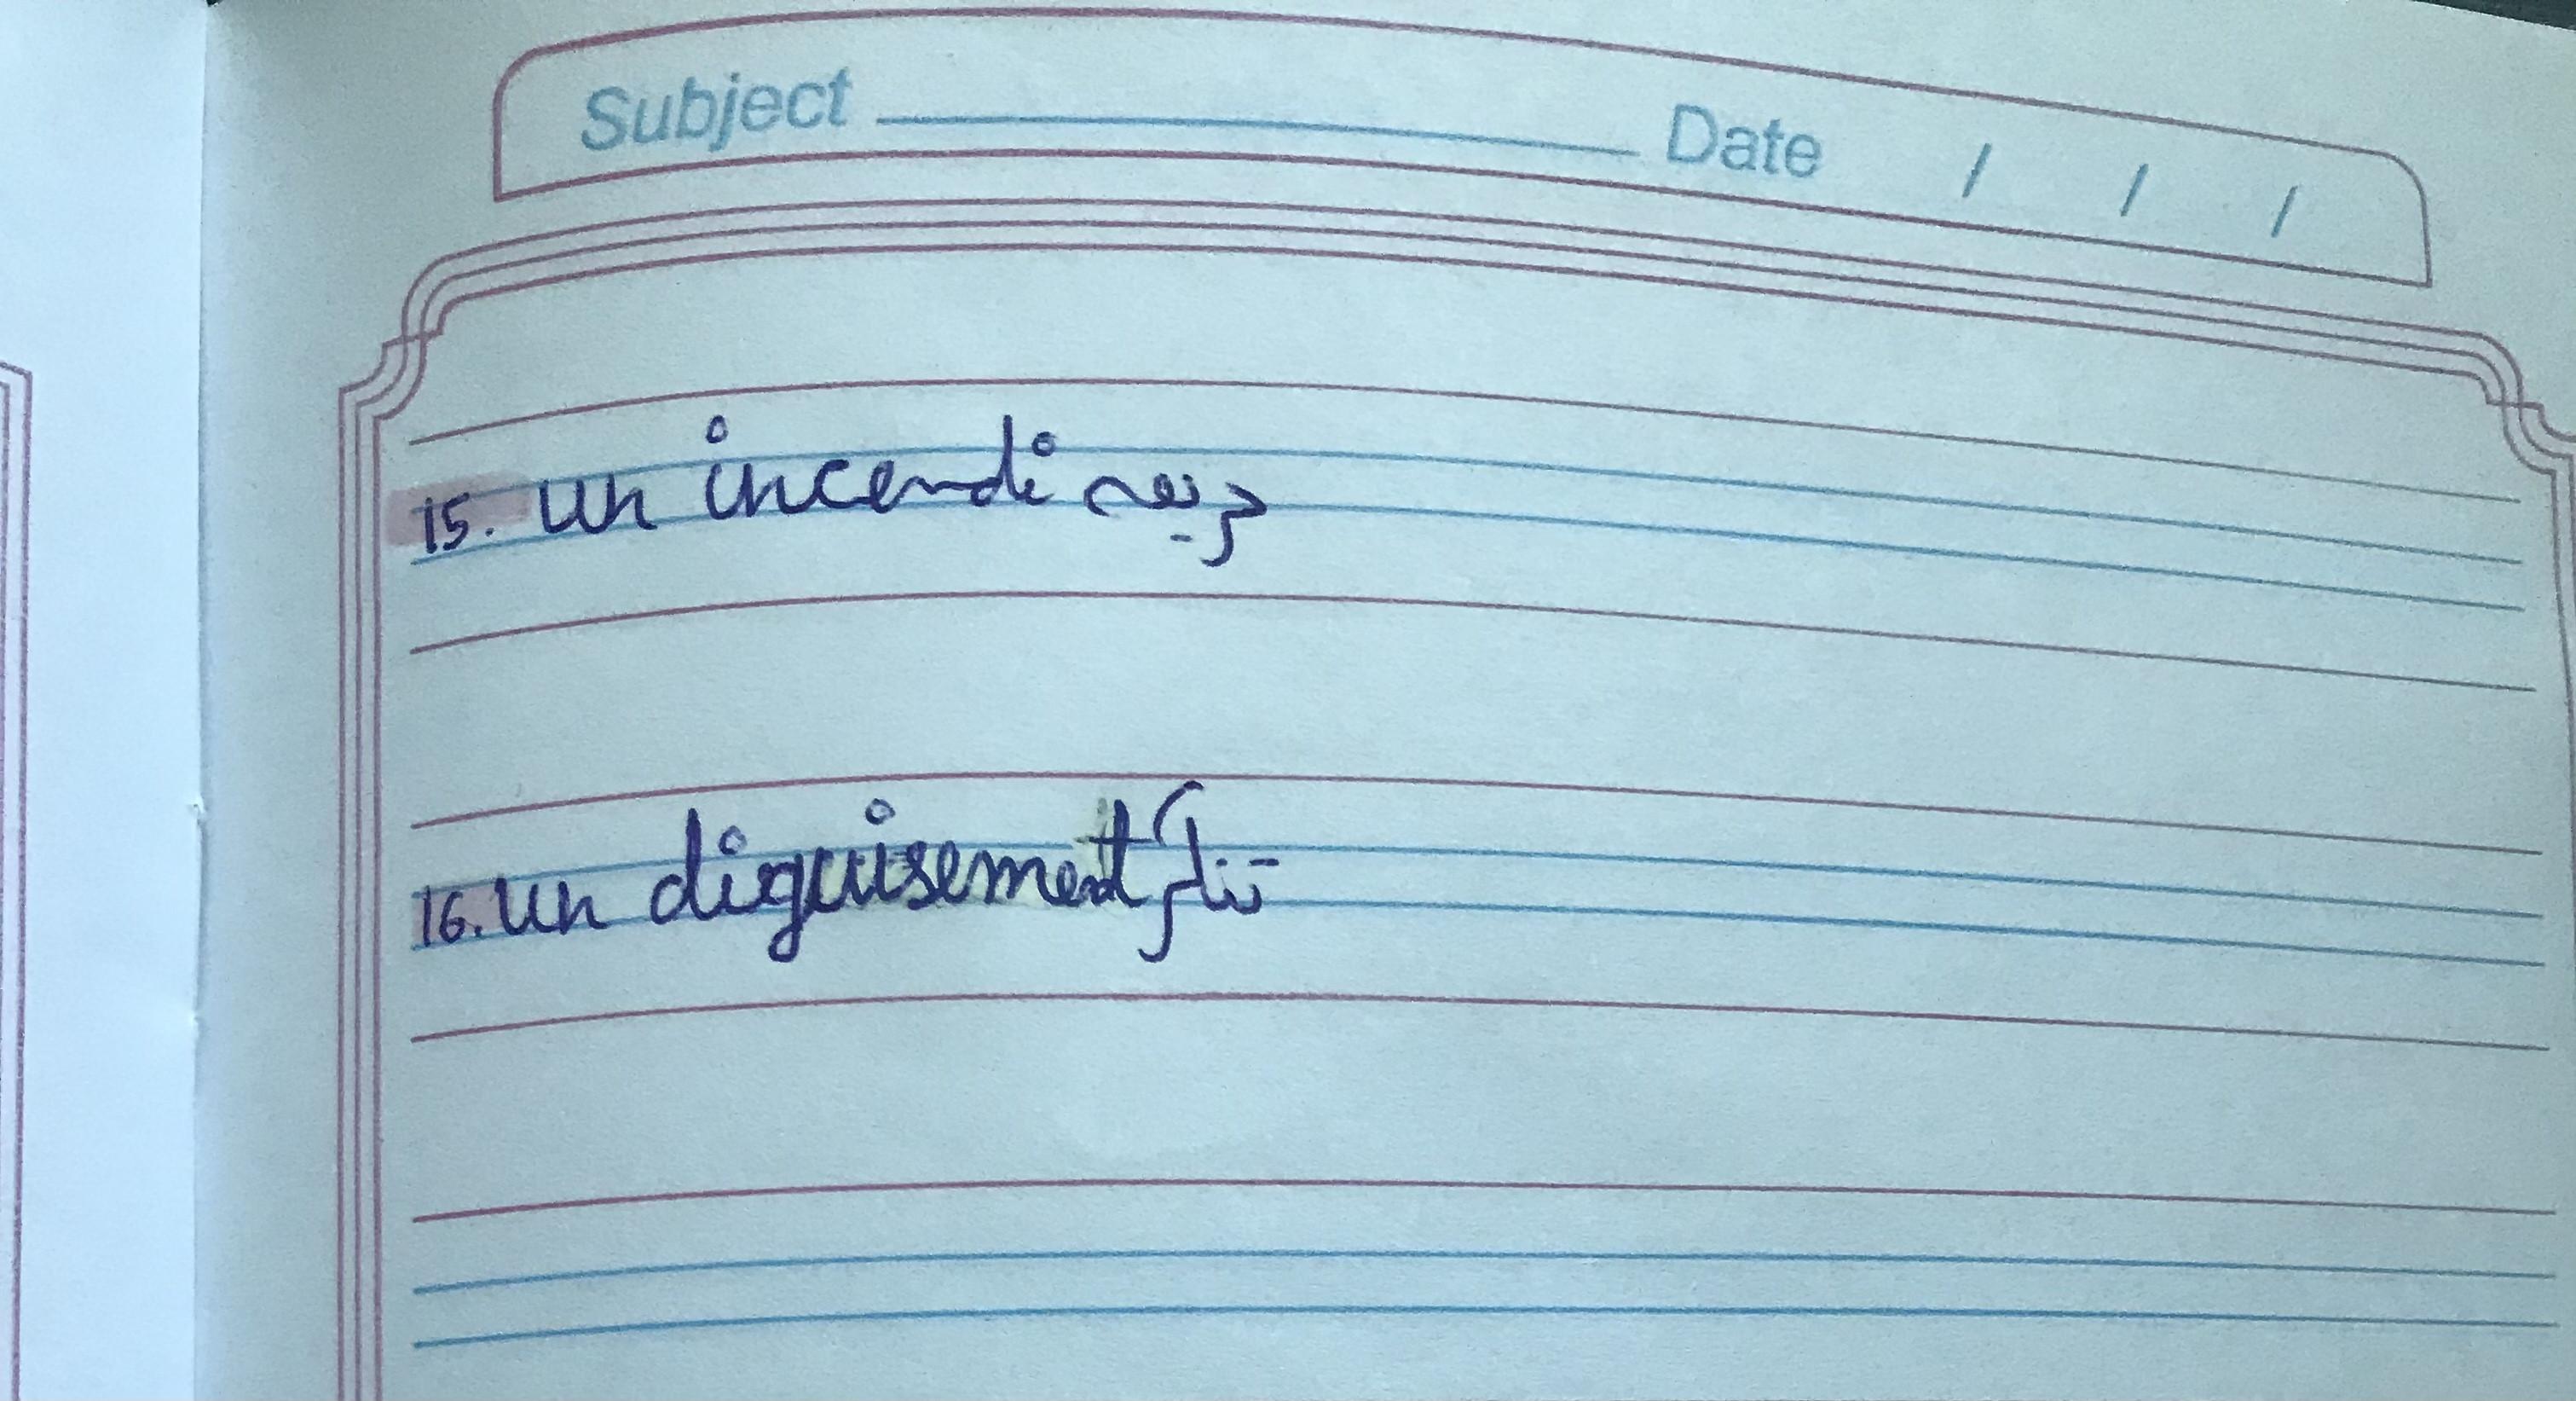 Subject Date / / /
15. un incendi حريق
16. un diguisement تنكر